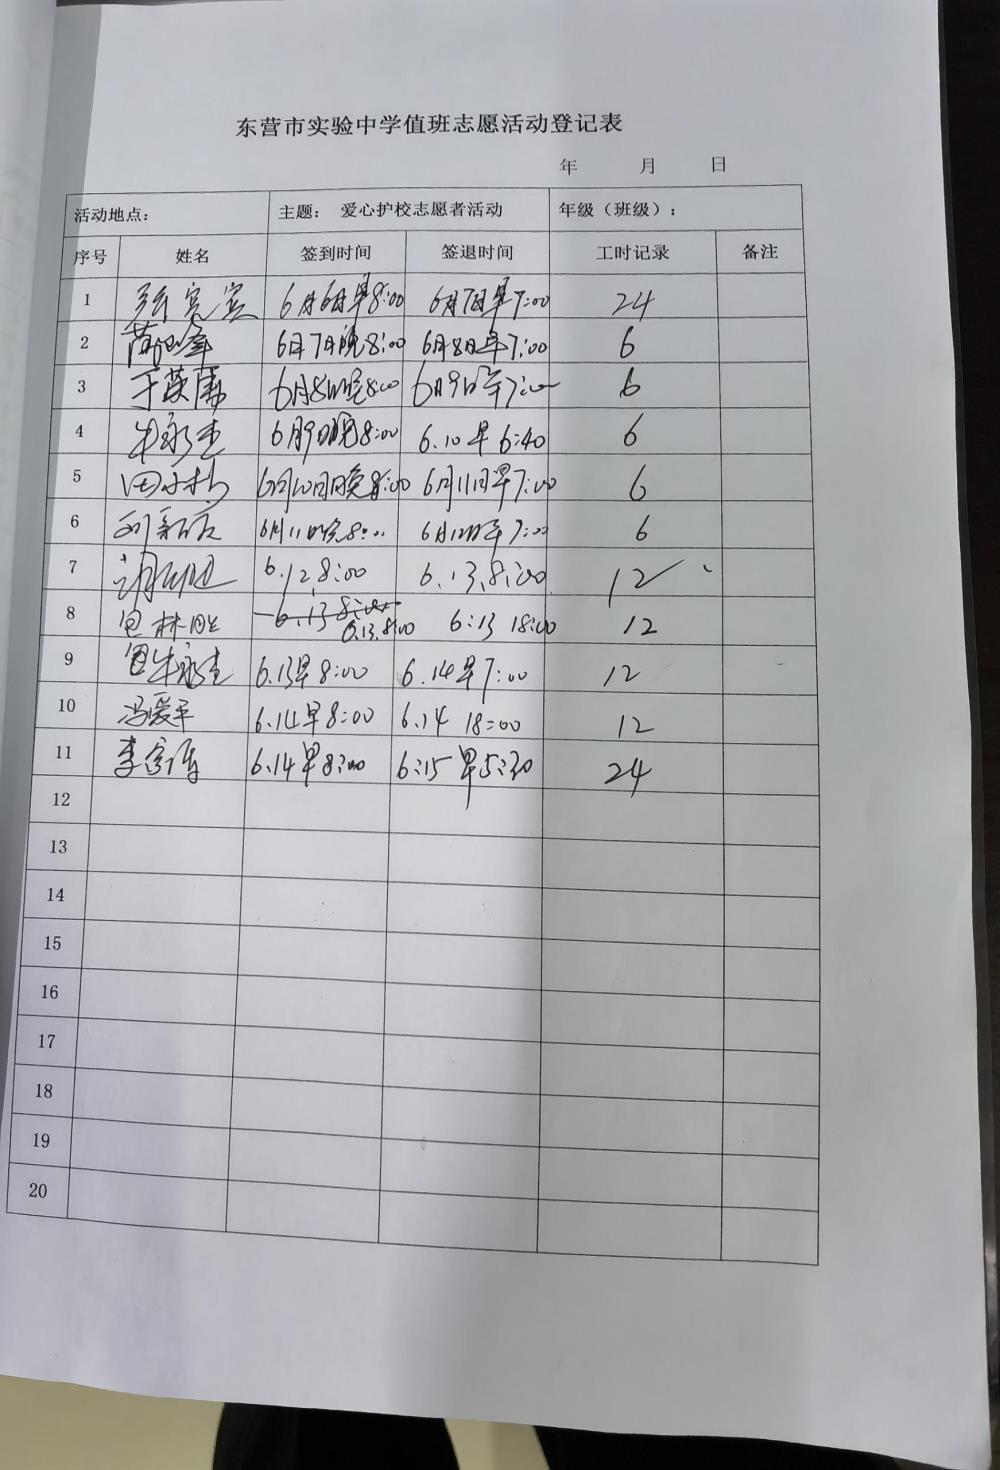 东营市实验中学值班志愿活动登记表
年 月 日
活动地点: 主题: 爱心护校志愿者活动 年级（班级）:
序号 姓名 签到时间 签退时间 工时记录 备注
1 6月6日早8:00 6月7日早7:00 24
2 6月7日晚8:00 6月8日早7:00 6
3 于英 6月8日晚8:00 6月9日早7:00 6
4 牛永圭 6月9日晚8:00 6.10早6:40 6
5 田 6月10日晚8:00 6月11日早7:00 6
6 刘 6月11日晚8:00 6月12日早7:00 6
7 6.12 8:00 6.13.8:00 12
8 林 6.13 8:00 6.13.8:00 6:13 18:00 12
9 牛永圭 6.13早8:00 6.14早7:00 12
10 冯爱平 6.14早8:00 6.14 18:00 12
11 李 6.14早8:00 6:15早5:30 24
12
13
14
15
16
17
18
19
20